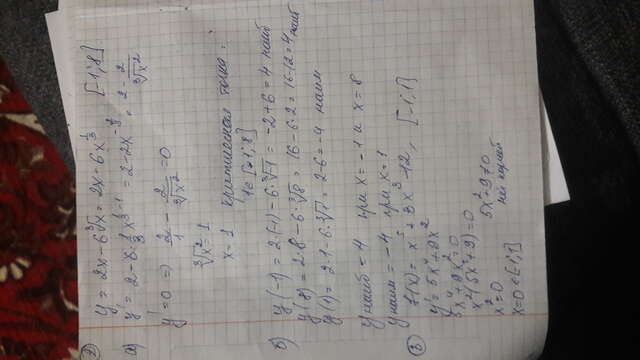 2) y = 2x - 6∛x = 2x - 6x^(1/3) [-1; 8]
а) y' = 2 - 6·1/3 x^(1/3 - 1) = 2 - 2x^(-2/3) = 2 - 2/∛x²
y' = 0 => 2/1 - 2/∛x² = 0
∛x² = 1 критическая точка:
x = 1 1∈[-1; 8]
б) y(-1) = 2·(-1) - 6·∛-1 = -2 + 6 = 4 наиб
y(8) = 2·8 - 6·∛8 = 16 - 6·2 = 16 - 12 = 4 наиб
y(1) = 2·1 - 6·∛1 = 2 - 6 = -4 наим
y наиб = 4 при x = -1 и x = 8
y наим = -4 при x = 1
f(x) = x⁵ + 3x³ - 12, [-1; 1]
y' = 5x⁴ + 9x²
5x⁴ + 9x² = 0
x²(5x² + 9) = 0
x² = 0 5x² + 9 ≠ 0
x = 0 ∈ [-1; 1]